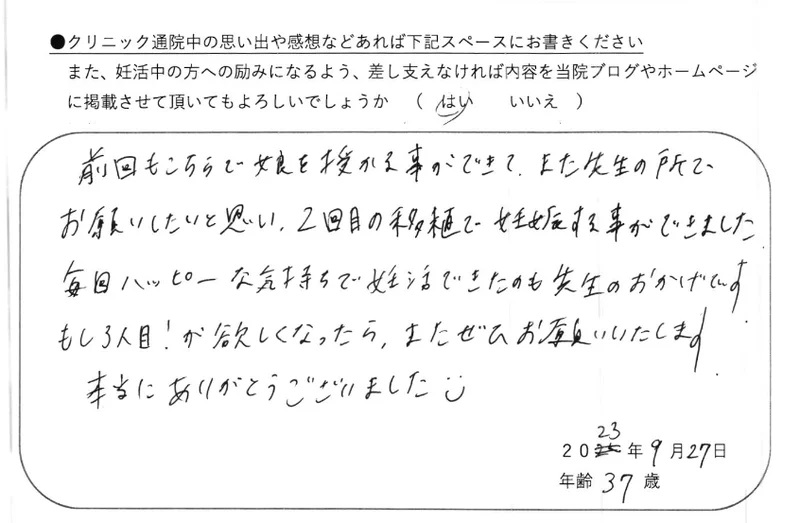 ●クリニック通院中の思い出や感想などあれば下記スペースにお書きください
また、妊活中の方への励みになるよう、差し支えなければ内容を当院ブログやホームページ
に掲載させて頂いてもよろしいでしょうか （ はい いいえ ）
前回もこちらで娘を授かる事ができて、また先生の所で
お願いしたいと思い、2回目の移植で妊娠する事ができました
毎回ハッピーな気持ちで妊活できたのも先生のおかげです
もし3人目!が欲しくなったら、またぜひお願いいたします
本当にありがとうございました
2023年9月27日
年齢 37歳